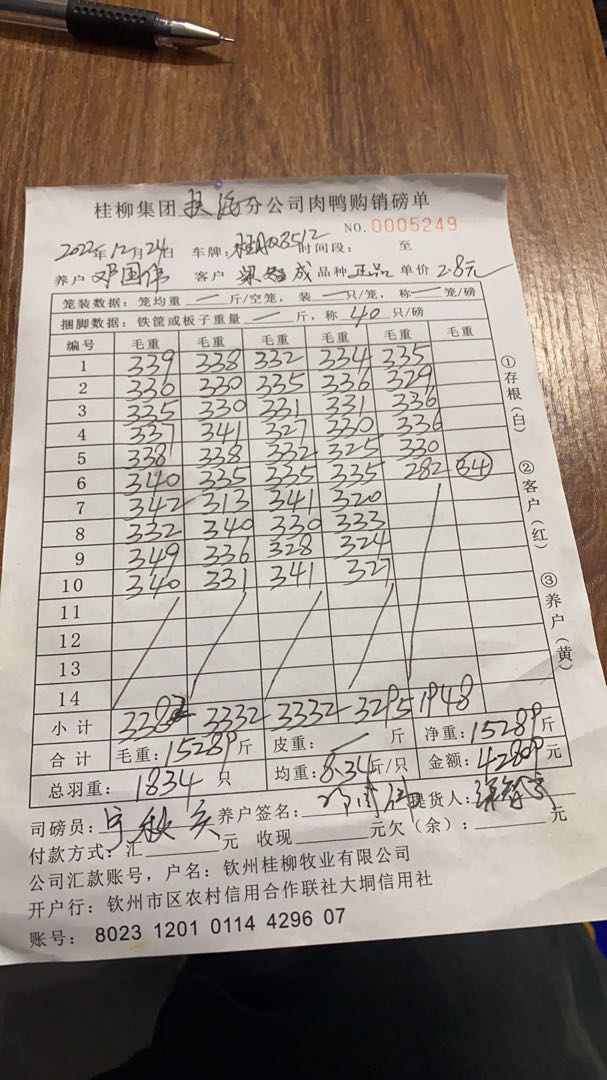 桂柳集团扶绥分公司肉鸭购销磅单
NO.0005249
2022年12月24日 车牌: 时间段: 至
养户 邓国伟 客户 梁智成 品种 正品 单价 2.8元
笼装数据: 笼均重 — 斤/空笼, 装 — 只/笼, 称 — 笼/磅
捆脚数据: 铁筐或板子重量 — 斤, 称 40 只/磅
编号 毛重 毛重 毛重 毛重 毛重 毛重
1 339 338 332 334 335
2 330 330 335 336 329
3 335 330 331 331 336
4 337 341 327 330 336
5 338 338 332 325 330
6 340 335 335 335 282 34
7 342 313 341 320
8 332 340 330 333
9 349 336 328 324
10 340 331 341 327
11
12
13
14
小计 3382 3332 3332 3295 1948
合计 毛重: 15289斤 皮重: — 斤 净重: 15289斤
总羽重: 1834 只 均重: 8.34斤/只 金额: 42809元
司磅员: 养户签名: 邓国伟 提货人: 梁智成
付款方式: 汇 元 收现 元欠(余): 元
公司汇款账号, 户名: 钦州桂柳牧业有限公司
开户行: 钦州市区农村信用合作联社大垌信用社
账号: 8023 1201 0114 4296 07
①存根(白)
②客户(红)
③养户(黄)